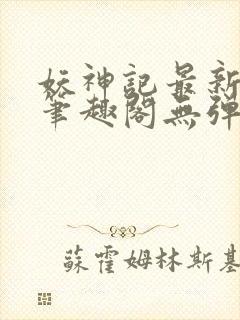 妖神記最新
筆趣閣無彈
蘇霍姆林斯基